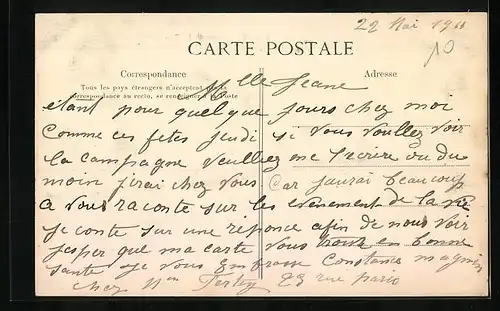 22 Mai 191
10
CARTE POSTALE
Correspondance
Adresse
Tous les pays étrangers n'acceptent pas la
correspondance au recto, se renseigner à la Poste
Mlle Jeane
étant pour quelque jours chez moi
Comme ces fetes jeudi si vous voullez voir
la campagne veulliez me Ecrire ou du
moin jirai chez vous Car jaurai beaucoup
a vous raconte sur les evenement de la vie
je conte sur une réponce afin de nous voir
jesper que ma carte vous trouve en bonne
sante je vous Embrasse Constance
chez Mm 23 rue paris